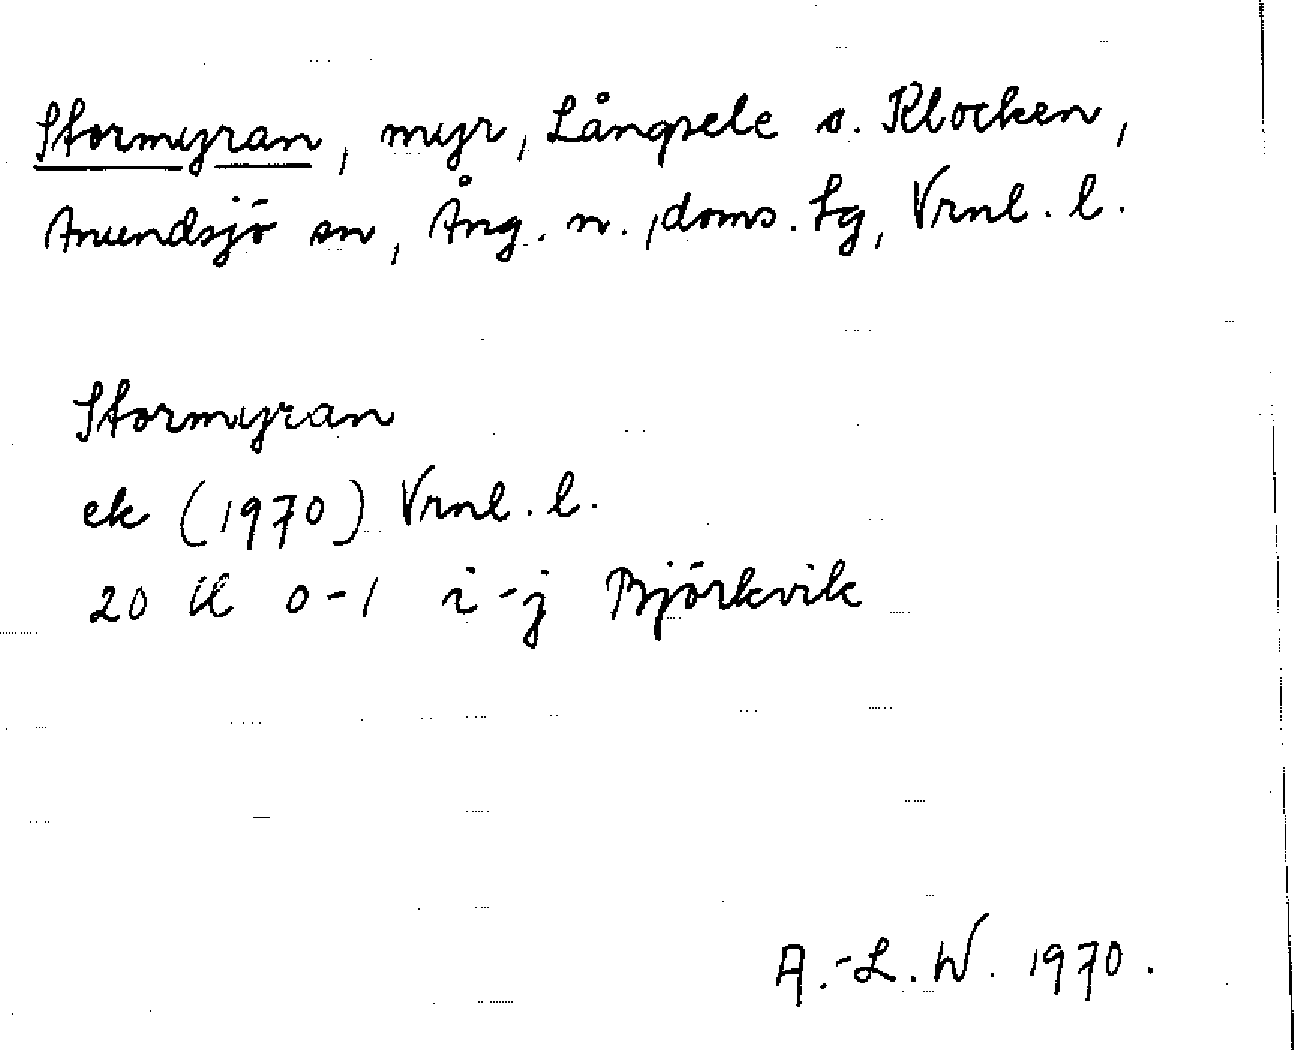 Stormyran, myr, Långsele s. Klocken,
Anundsjö sn, Ång. n., doms. lg, Vrnl. l.
Stormyran
ek (1970) Vrnl. l.
20 H 0-1 i-j Björkvik
A.-L. W. 1970.